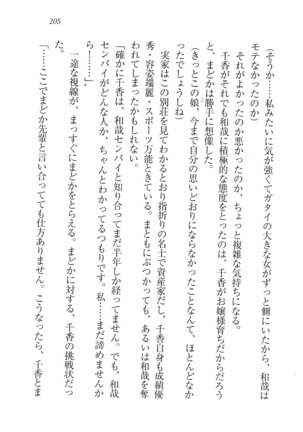 205
(そうか……私みたいに気が強くてガタイの大きな女がずっと側にいたから、和哉は
モテなかったのか)
それがよかったのか悪かったのか、ちょっと複雑な気持ちになる。
千香がそれでも和哉に積極的な態度をとったのは、千香がお嬢様育ちだからだろう
か、まどかは勝手に想像した。
(きっとこの娘、今まで自分の思いどおりにならなかったことなんて、ほとんどなか
ったでしょうしね)
実家はこの別荘を見てわかるとおり指折りの名士で資産家だし、千香自身も成績優
秀・容姿端麗・スポーツ万能ときている。まともにぶつかっても、あるいは和哉を奪
われてしまったかもしれない。
「確かに千香は、和哉センパイと知り合ってまだ半年しか経ってません。でも、和哉
センパイがどんな人か、ちゃんとわかってるつもりです。私……まだ諦めませんか
ら……」
一途な視線が、まっすぐにまどかをとらえる。まどかに対する、千香の挑戦状だっ
た。
「……ここでまどか先輩と言い合ってても仕方ありません。こうなったら、千香とま